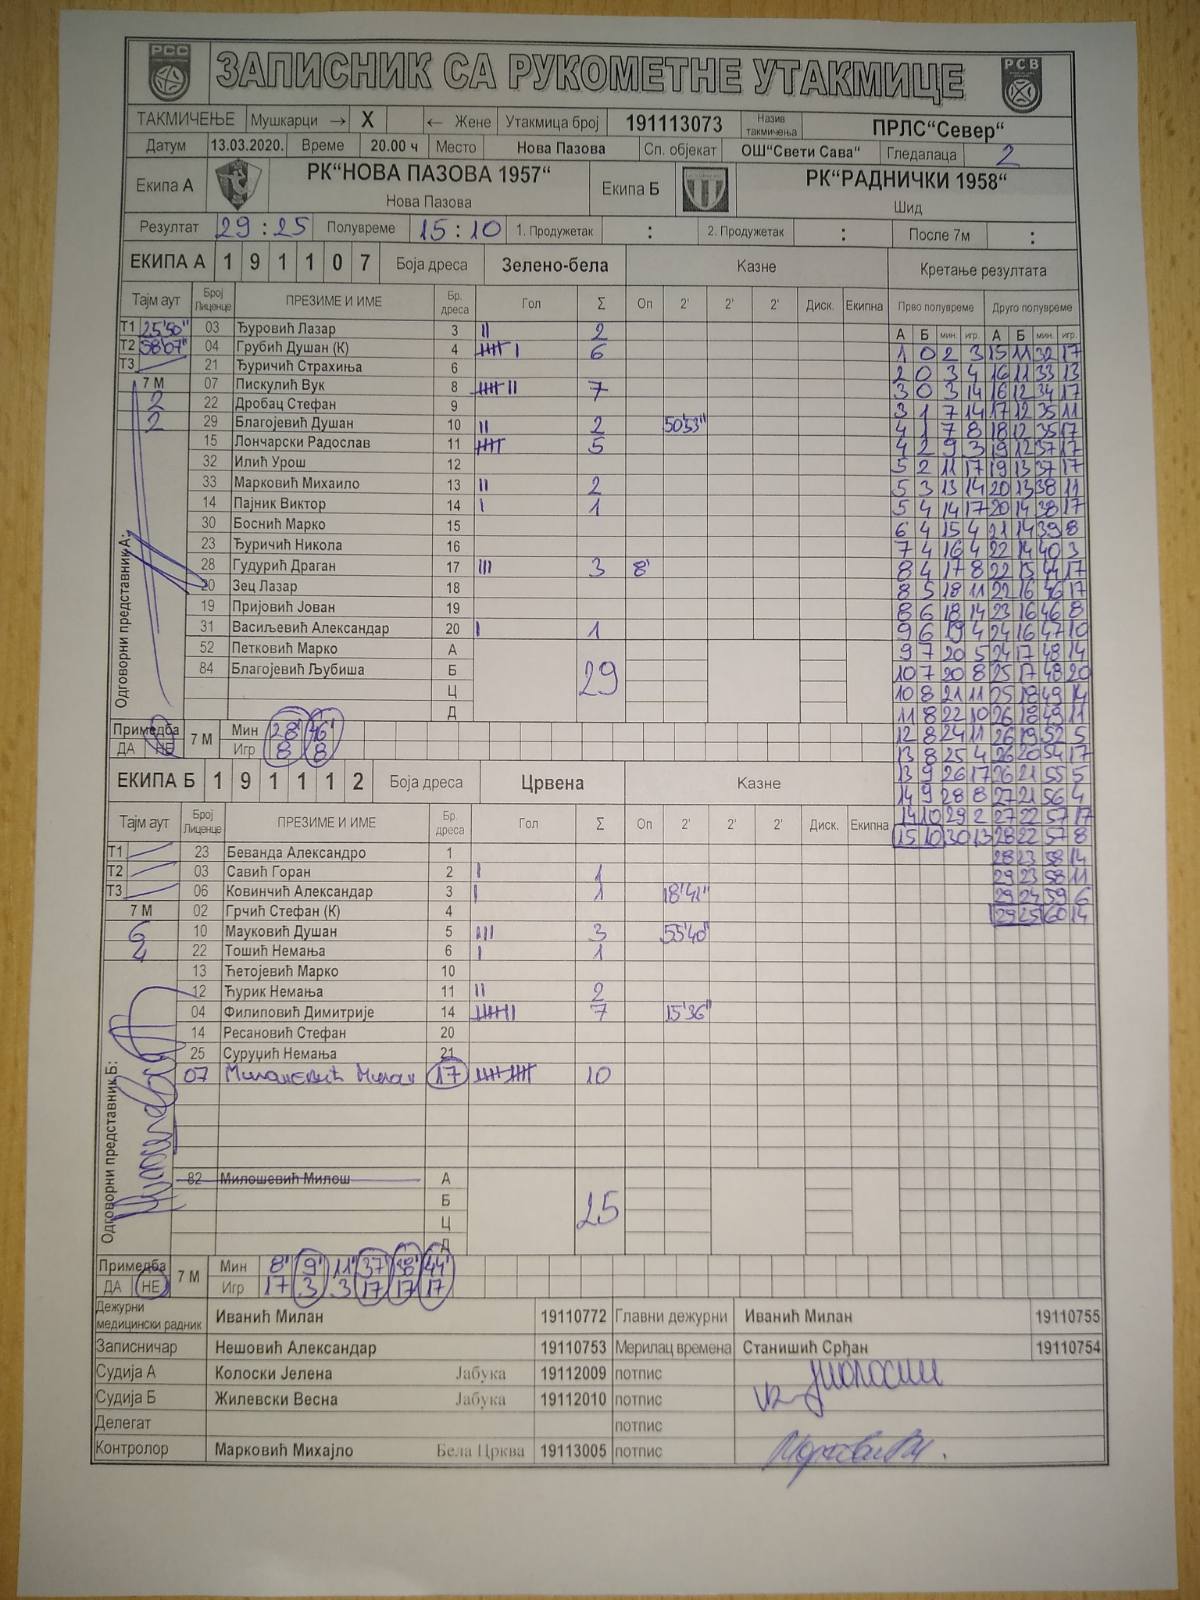 РСС
ЗАПИСНИК СА РУКОМЕТНЕ УТАКМИЦЕ
РСВ
ТАКМИЧЕЊЕ Мушкарци → X ← Жене Утакмица број 191113073 Назив такмичења ПРЛС“Север“
Датум 13.03.2020. Време 20.00 ч Место Нова Пазова Сп. објекат ОШ“Свети Сава“ Гледалаца 2
Екипа А РК“НОВА ПАЗОВА 1957“ Нова Пазова Екипа Б РК“РАДНИЧКИ 1958“ Шид
Резултат 29 : 25 Полувреме 15 : 10 1. Продужетак : 2. Продужетак : После 7м :
ЕКИПА А 1 9 1 1 0 7 Боја дреса Зелено-бела Казне Кретање резултата
Тајм аут Број Лиценце ПРЕЗИМЕ И ИМЕ Бр. дреса Гол Σ Оп 2' 2' 2' Диск. Екипна Прво полувреме Друго полувреме
А Б мин. игр. А Б мин. игр.
Т1 25'50" 03 Ђуровић Лазар 3 II 2
Т2 58'07" 04 Грубић Душан (К) 4 IIII I 6
Т3 21 Ђуричић Страхиња 6
7 М 07 Пискулић Вук 8 IIII II 7
2 22 Дробац Стефан 9
2 29 Благојевић Душан 10 II 2 50'53"
15 Лончарски Радослав 11 IIII 5
32 Илић Урош 12
33 Марковић Михаило 13 II 2
14 Пајник Виктор 14 I 1
30 Боснић Марко 15
23 Ђуричић Никола 16
28 Гудурић Драган 17 III 3 8'
20 Зец Лазар 18
19 Пријовић Јован 19
31 Васиљевић Александар 20 I 1
52 Петковић Марко А
84 Благојевић Љубиша Б 29
Ц
Д
Одговорни представник А:
Примедба ДА НЕ 7 М Мин 28' 46'
Игр 8 8
1 0 2 3 15 11 32 17
2 0 3 4 16 11 33 13
3 0 3 14 16 12 34 17
3 1 7 14 17 12 35 11
4 1 7 8 18 12 35 17
4 2 9 3 19 12 37 17
5 2 11 17 19 13 37 17
5 3 13 14 20 13 38 11
5 4 14 17 20 14 38 17
6 4 15 4 21 14 39 8
7 4 16 4 22 14 40 3
8 4 17 8 22 15 44 17
8 5 18 11 22 16 46 17
8 6 18 14 23 16 46 8
9 6 19 4 24 16 47 10
9 7 20 5 24 17 48 14
10 7 20 8 25 17 48 20
10 8 21 11 25 18 49 14
11 8 22 10 26 18 49 11
12 8 24 11 26 19 52 5
13 8 25 4 26 20 54 17
13 9 26 17 26 21 55 5
14 9 28 8 27 21 56 4
14 10 29 2 27 22 57 17
15 10 30 13 28 22 57 8
28 23 58 14
29 23 58 11
29 24 59 6
29 25 60 14
ЕКИПА Б 1 9 1 1 1 2 Боја дреса Црвена Казне
Тајм аут Број Лиценце ПРЕЗИМЕ И ИМЕ Бр. дреса Гол Σ Оп 2' 2' 2' Диск. Екипна
Т1 23 Беванда Александро 1
Т2 03 Савић Горан 2 I 1
Т3 06 Ковинчић Александар 3 I 1 18'41"
7 М 02 Грчић Стефан (К) 4
6 10 Мауковић Душан 5 III 3 55'40"
4 22 Тошић Немања 6 I 1
13 Ћетојевић Марко 10
12 Ђурик Немања 11 II 2
04 Филиповић Димитрије 14 IIII II 7 15'36"
14 Ресановић Стефан 20
25 Суруџић Немања 21
07 Милановић Милан 17 IIII IIII 10
82 Милошевић Милош А
Б 25
Ц
Д
Одговорни представник Б:
Примедба ДА НЕ 7 М Мин 8' 9' 11' 37' 38' 44'
Игр 17 3 3 17 17 17
Дежурни медицински радник Иванић Милан 19110772 Главни дежурни Иванић Милан 19110755
Записничар Нешовић Александар 19110753 Мерилац времена Станишић Срђан 19110754
Судија А Колоски Јелена Јабука 19112009 потпис
Судија Б Жилевски Весна Јабука 19112010 потпис
Делегат потпис
Контролор Марковић Михајло Бела Црква 19113005 потпис